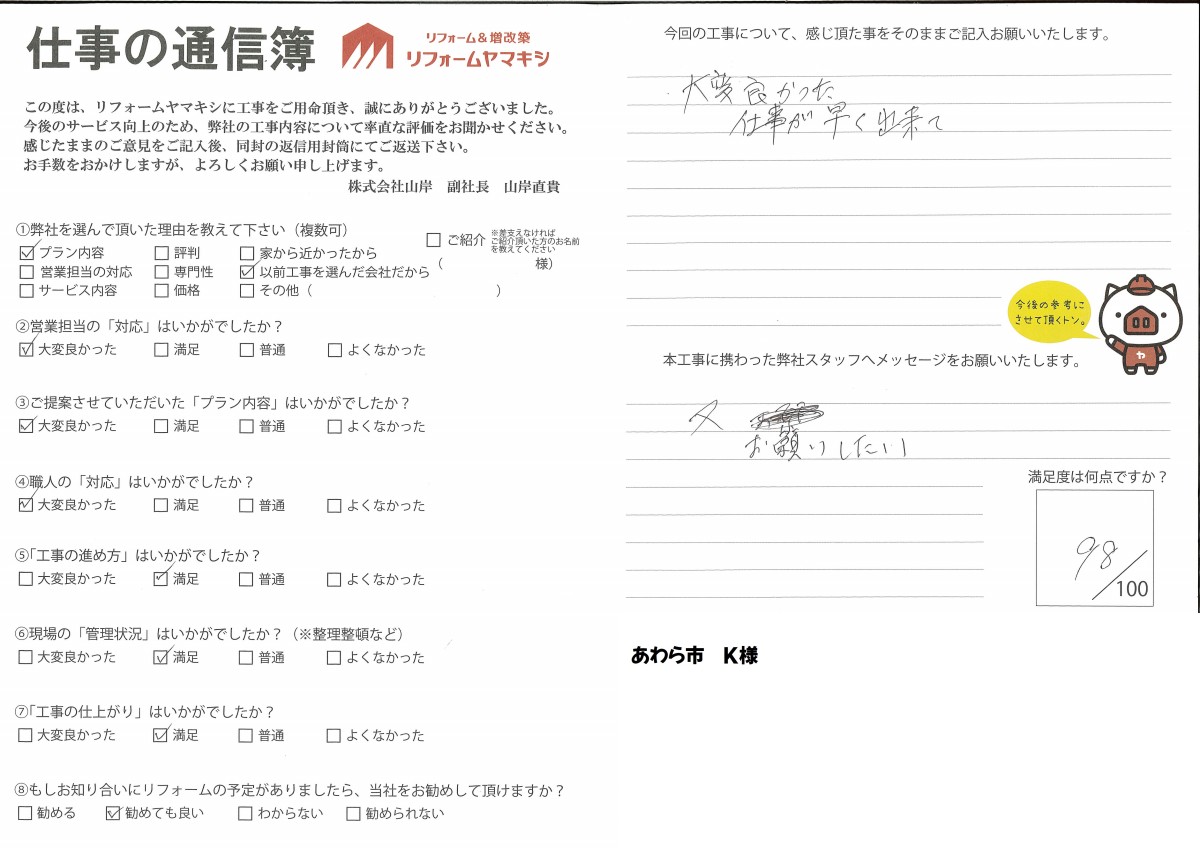 仕事の通信簿
リフォーム&増改築
リフォームヤマキシ
この度は、リフォームヤマキシに工事をご用命頂き、誠にありがとうございました。
今後のサービス向上のため、弊社の工事内容について率直な評価をお聞かせください。
感じたままのご意見をご記入後、同封の返信用封筒にてご返送下さい。
お手数をおかけしますが、よろしくお願い申し上げます。
株式会社山岸 副社長 山岸直貴
①弊社を選んで頂いた理由を教えて下さい（複数可）
☑プラン内容 □評判 □家から近かったから □ご紹介 ※差支えなければ
ご紹介頂いた方のお名前
を教えてください
□営業担当の対応 □専門性 ☑以前工事を選んだ会社だから （ 様）
□サービス内容 □価格 □その他（ ）
②営業担当の「対応」はいかがでしたか？
☑大変良かった □満足 □普通 □よくなかった
③ご提案させていただいた「プラン内容」はいかがでしたか？
☑大変良かった □満足 □普通 □よくなかった
④職人の「対応」はいかがでしたか？
☑大変良かった □満足 □普通 □よくなかった
⑤「工事の進め方」はいかがでしたか？
□大変良かった ☑満足 □普通 □よくなかった
⑥現場の「管理状況」はいかがでしたか？（※整理整頓など）
□大変良かった ☑満足 □普通 □よくなかった
⑦「工事の仕上がり」はいかがでしたか？
□大変良かった ☑満足 □普通 □よくなかった
⑧もしお知り合いにリフォームの予定がありましたら、当社をお勧めして頂けますか？
□勧める ☑勧めても良い □わからない □勧められない
今回の工事について、感じ頂た事をそのままご記入お願いいたします。
大変良かった
仕事が早く出来て
今後の参考に
させて頂くトン。
ヤ
本工事に携わった弊社スタッフへメッセージをお願いいたします。
又
お願いしたい
満足度は何点ですか？
98/100
あわら市 K様